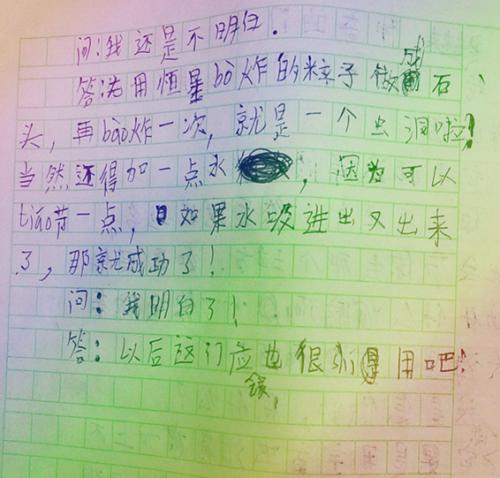 问:我还是不明白.
答:先用恒星bō炸的粒子做成石
头，再bào炸一次，就是一个虫洞啦！
当然还得加一点水，因为可以
tiáo节一点，如果水吸进出又出来
了，那就成功了！
问：我明白了！
答：以后这门应也很用吧！